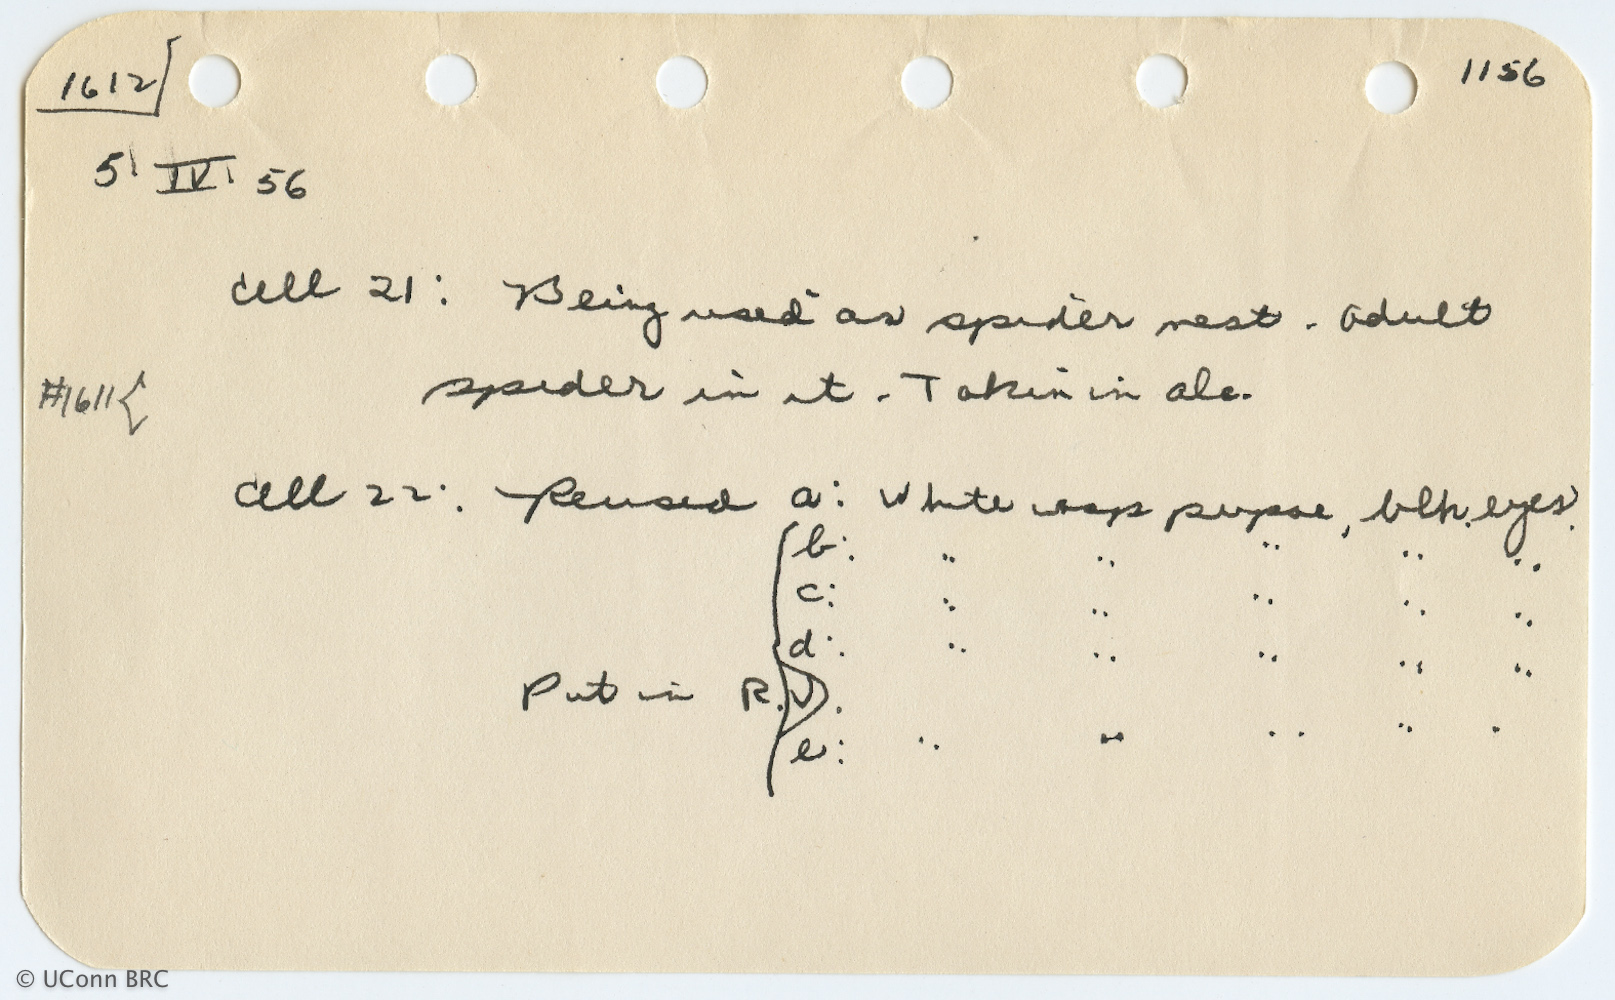 1612
1156
5 IV 56
Cell 21: Being used as spider nest. Adult
#1611{ spider in it. Taken in alc.
Cell 22: Reused a: White wasp pupae, blk. eyes.
b: " " " " "
c: " " " " "
d: " " " " "
Put in R.V.
e: " " " " "
© UConn BRC